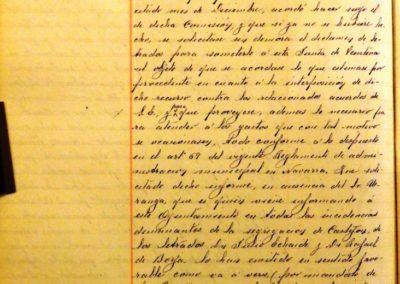 citado mes de Diciembre, acordó hacer suyo el
de dicha Comisión, y que si ya no se hubiere he-
cho, se solicitase sin demora el dictamen de le-
trados para someterle á esta Junta de Veintena
al objeto de que se acordase lo que estimara por
procedente en cuanto á la interposición de di-
cho recurso contra los relacionados acuerdos de
S.E. y para que proveyese, además lo necesario pa
ra atender á los gastos que con tal motivo
se ocasionasen, todo conforme á lo dispuesto
en el art 59 del vigente Reglamento de admi-
nistracion municipal en Navarra. Que soli-
citado dicho informe, en ausencia del Sr.
ranga, que es quien viene informando á
este Ayuntamiento en todas las incidencias
dimanantes de la segregación de
los letrados Dn y Dn Rafael
de lo han emitido en sentido favo-
rable como va á verse (por mandado de